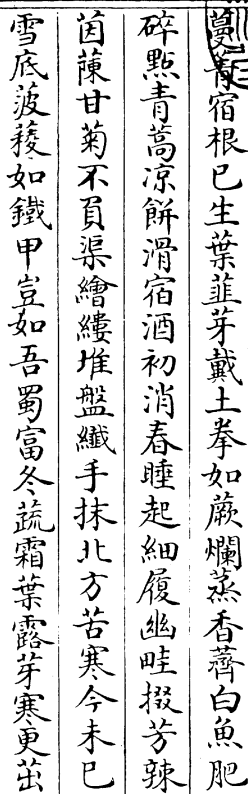 蔓菁宿根已生葉韮芽戴土拳如蕨爛蒸香薺白魚肥
碎點青蒿凉餅滑宿酒初消春睡起細履幽畦掇芳辣
茵蔯甘菊不負渠繪縷堆盤纖手抹北方苦寒今未已
雪底菠薐如鐵甲豈如吾蜀富冬蔬霜葉露芽寒更茁